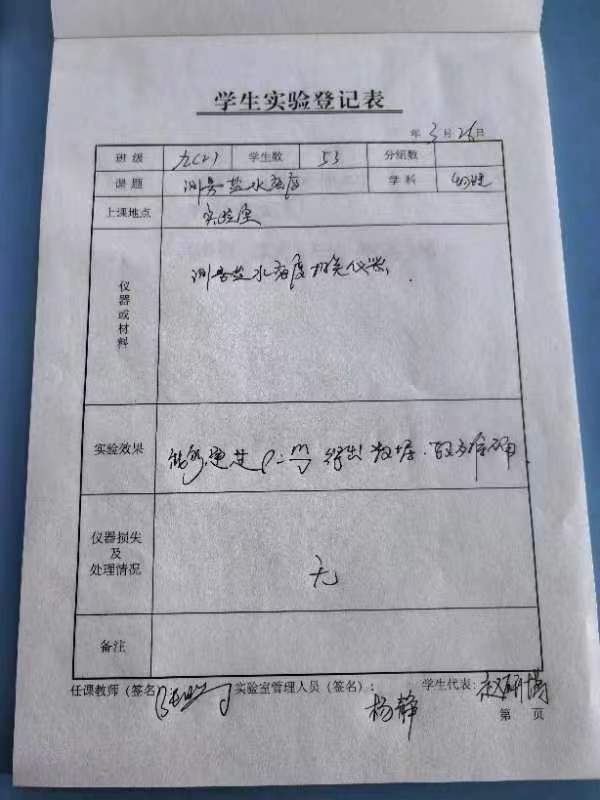 学生实验登记表
年 3 月 26 日
班级 九(2) 学生数 53 分组数
课题 测量盐水密度 学科 物理
上课地点 实验室
仪器或材料 测量盐水密度相关仪器.
实验效果 能够通过 ρ=m/v 得出数据.较为准确
仪器损失及处理情况 无
备注
任课教师(签名) 实验室管理人员(签名): 杨静 学生代表:
第 页